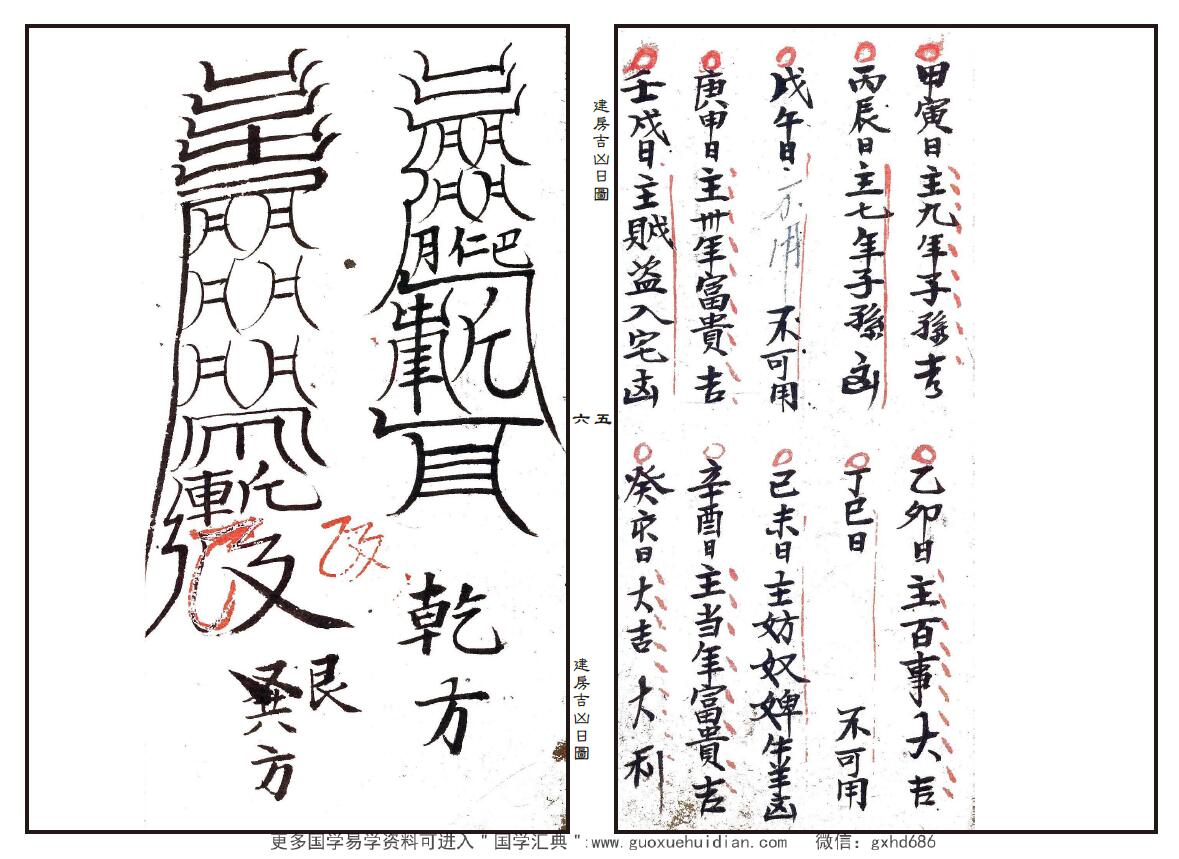 甲寅日主九年子孫吉
丙辰日主七年子孫凶
戊午日不用 不可用
庚申日主卅年富貴吉
壬戌日主賊盜入宅凶
乙卯日主百事大吉
丁巳日 不可用
己未日主妨奴婢牛羊凶
辛酉日主当年富貴吉
癸亥日大吉大利
建房吉凶日圖
五
六
建房吉凶日圖
乾方
改
艮
巽方
更多国学易学资料可进入＂国学汇典＂:www.guoxuehuidian.com 微信：gxhd686